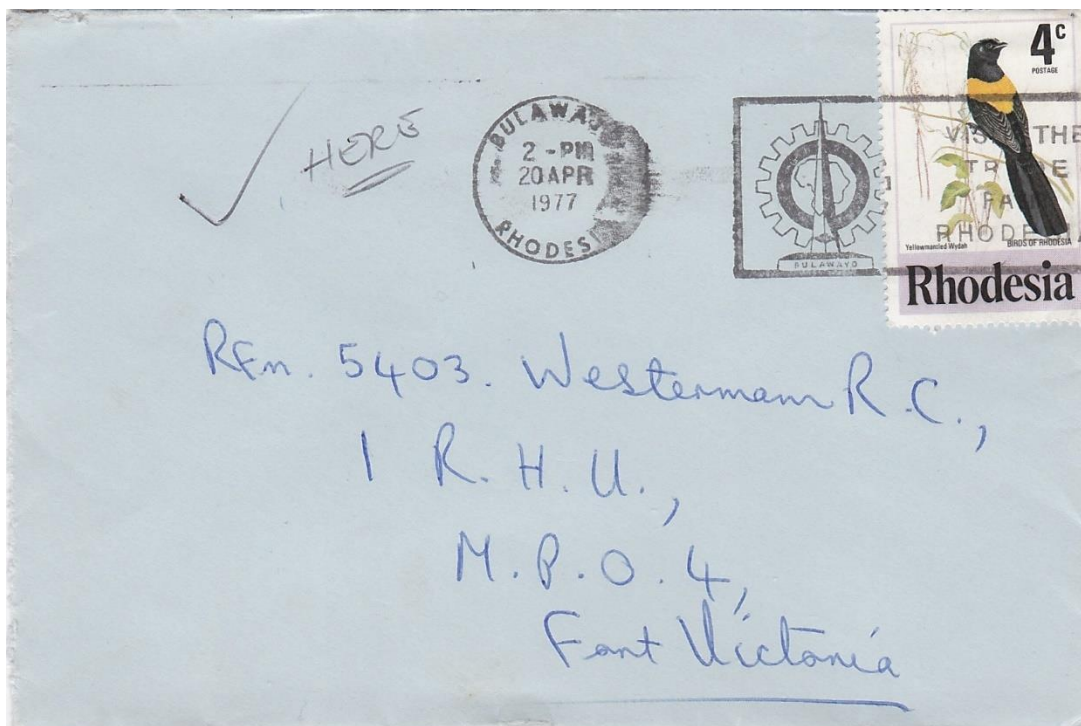 4c
POSTAGE
✓ HERE
BULAWAYO
2 - PM
20 APR
1977
RHODESIA
BULAWAYO
VISIT THE
TRADE
FAIR
RHODESIA
Yellowmantled Wydah BIRDS OF RHODESIA
Rhodesia
Rfn. 5403. Westermam R.C.,
1 R.H.U.,
M.P.O. 4,
Fort Victoria